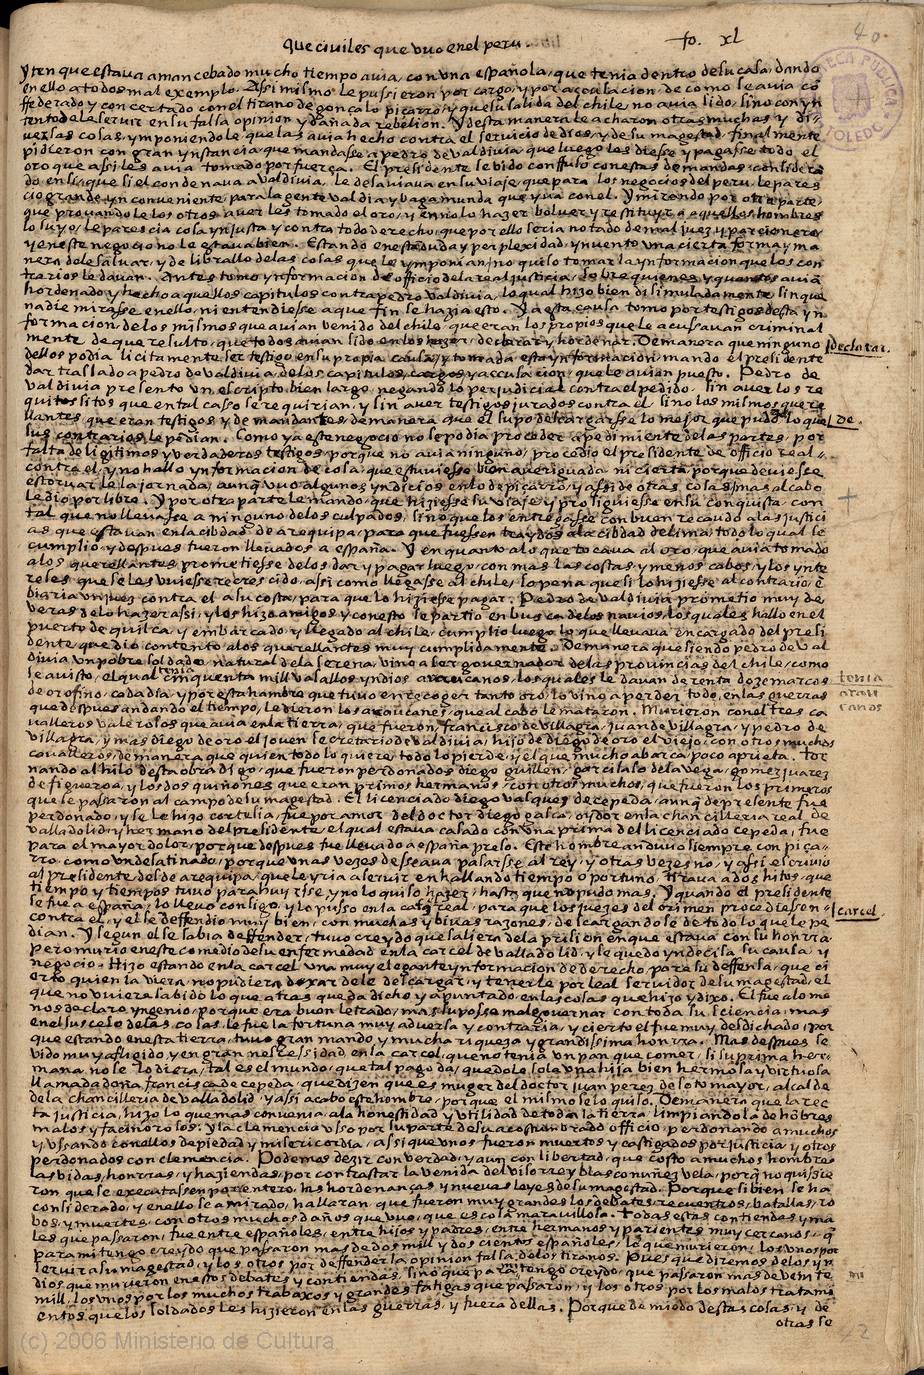 Que civiles que vuo enel peru.
fo. xl
40
yten que estava amancebado mucho tiempo avia, con vna española, que tenia dentro desu casa, dando
en ello a todos mal exemplo. Assi mismo le pussieron por cargo, y por acculacion, de como se avia co
ffederado y concertado conel tirano de gonçalo piçarro, y que su salida del chile, no avia sido, sino con yn
tento de le servir en su falsa opinion y dañada rebelion. Y desta manera le acharon otras muchas y di-
versas cosas, ymponiendole, que las avia hecho contra el servicio de dios, y de su magestad, finalmente
pidieron con gran ynstancia, que mandasse a pedro de valdivia, que luego les diesse y pagasse todo el
oro que assi les avia tomado por fuerça. El presidente se vido confusso con estas demandas, considera
do en si, que si el condenava a valdivia, le desaviava en su viaje, que para los negocios del peru, le pares
cio grande ynconveniente, para la gente valdia y bagamunda que yva con el. Y mirando por otra parte,
que provando le los otros, aver les tomado el oro, y en no lo hazer bolver y restituyr a aquellos hombres
lo suyo, le parescia cosa ynjusta y contra todo derecho, que por ello seria notado de mal juez y parcionero
y en este negocio no le estava bien. Estando en esta duda y perplexidad, ynvento vna cierta forma y ma
nera de le salvar, y de librallo de las cosas que le ymponian, no quiso tomar la ynformacion que los con
trarios le davan. Antes tomo ynformacion de officio de la real justicia, sobre quienes y quantos avia
hordenado y hecho aquellos capitulos contra pedro valdivia, lo qual hizo bien disimuladamente sin que
nadie mirasse en ello, ni entendiesse a que fin se hazia esto. Y a esta causa tomo por testigos desta yn
formacion, de los mismos que avian venido del chile, que eran los propios que le acussavan criminal
mente, de que resulto, que todos avian sido en los hazer, declarar y hordenar. De manera que ninguno
declarar.
dellos podia licitamente ser testigo en su propia causa, y tomada esta ynformacion, mando el presidente
dar traslado a pedro de valdivia, de los capitulos, cargos y accusacion, que le avian puesto. Pedro de
valdivia presento vn escripto, bien largo, negando lo perjudicial contra el pedido, sin aver los re
quisitos que en tal casso se requirian, y sin aver testigos jurados contra el, sino los mismos quere
llantes, que eran testigos y demandantes, de manera que el supo descargarsse lo mejor que pudo, lo que
de.
sus contrarios le pedian. Como ya este negocio no se podia proceder a pedimiente de las partes, por
falta de ligitimos y verdaderos testigos, porque no avia ninguno, procedio el presidente de officio real
contra el, y no hallo ynformacion de cosa, que estuviesse bien averiguada, ni cierta, porque deviesse
estorvar le la jornada, aunq vuo algunos yndicios en lo de piçarro, y assi de otras cosas, mas al cabo
le dio por libre. Y por otra parte le mando, que hiziesse su viaje, y prosiguiesse en su conquista, con
tal que no llevasse a ninguno de los culpados, sino que los entregasse con buen recaudo a las justici
as que estavan en la cibdad de arequipa, para que fuessen traydos a la cibdad de lima, todo lo qual se
cumplio, y despues fueron llevados a españa. Y en quanto a lo que tocava al oro, que avia tomado
a los querellantes, prometiesse de los dar y pagar luego, con mas las costas, y menos cabos, y los ynte
reses, que se les vuiesse recrescido, assi como llegasse al chile, so pena que si lo hiziesse al contrario, e
bigria vn juez contra el a su costa, para que lo hiziesse pagar. Pedro de valdivia prometio muy de
veras de lo hazer assi, y los hizo amigos y con esto se partio en busca de los navios, los quales hallo en el
puerto de quilca, y embarcado y llegado al chile, cumplio luego lo que llevava encargado del presi
dente, que dio contento a los querellantes muy cumplidamente. De manera que siendo pedro de val
divia vn pobre soldado, natural de la serena, vino a ser governador de las provincias del chile, como
se a visto, el qual tenia cinquenta mill vasallos yndios araucanos, los quales le davan de renta doze marcos
tenia
arau
canos
de oro fino, cada dia, y por esta hambre que tuvo en recoger tanto oro, lo vino a perder todo, en las guerras
que despues andando el tiempo, le dieron los araucanes, que al cabo le mataron. Murieron con el tres ca
valleros valerosos que avia en la tierra, que fueron, francisco de villagra, juan de villagra, y pedro de
villagra, y mas diego de oro el joven secretario de valdivia, hijo de diego de oro el viejo, con otros muchos
cavalleros, de manera que quien todo lo quiere, todo lo pierde, y el que mucho abarca, poco aprieta. Tor
nando al hilo desta obra digo, que fueron perdonados diego guillen, garcilaso de la vega, gomez juarez
de figueroa, y los dos quiñones que eran primos hermanos, con otros muchos, que fueron los primeros
que se passaron al campo de su magestad. El licenciado diego vasques de cepeda, aunq de presente fue
perdonado, y se le hizo cortesia, fue por amor del doctor diego gasca, oydor en la chancilleria real de
valladolid, y hermano del presidente, el qual estava casado con vna prima del licenciado cepeda, fue
para el mayor dolor, porque despues fue llevado a españa preso. Este hombre anduvo siempre con piça-
rro, como vn desatinado, porque vnas vezes desseava passarse al rey, y otras vezes no, y assi escrivio
al presidente desde arequipa, que le yria a servir en hallando tiempo oportuno, tirava a dos hitos, que
tiempo y tiempos tuvo para huyrsse, y no lo quiso hazer, hasta que no pudo mas. Y quando el presidente
se fue a españa, lo llevo consigo, y lo pusso en la carcel real, para que los juezes del crimen procediessen
carcel
contra el, y el se deffendio muy bien, con muchas y bivas razones, descargandose de todo lo que le pe
dian. Y segun el se sabia deffender, tuvo creydo que saliera de la prision en que estava con su honrra
pero murio en este comedio de su enfermedad en la carcel de valladolid, y se quedo yndecisa, su causa y
negocio. Hizo estando en la carcel vna muy elegante ynformacion de derecho, para su deffensa, que ci
erto quien la viera, no pudiera dexar de le descargar, y tenerle por leal servidor de su magestad, el
que no vuiera sabido lo que atras queda dicho y apuntado, en las cosas que hizo y dixo. El fue a lo me
nos de claro yngenio, porque era buen letrado, mas supo se mal governar con toda su sciencia, mas
en el suscesso de las cosas, le fue la fortuna muy adversa y contraria, y cierto el fue muy desdichado, por
que estando en esta tierra, tuvo gran mando y mucha riqueza y grandissima honrra. Mas despues se
vido muy afligido, y en gran nescessidad en la carcel, que no tenia vn pan que comer, si su prima her-
mana no se lo diera, tal es el mundo, que tal pago da, quedole sola vna hija bien hermosa y virtuosa
llamada doña francisca de cepeda, que dizen que es muger del doctor juan perez de soto mayor, alcalde
de la chancilleria de valladolid, y assi acabo este hombre, porque el mismo se lo quiso. De manera que la rec
ta justicia, hizo lo que mas convenia, a la honestidad y vtilidad de toda la tierra, limpiandola de hõbres
malos y facinorosos. Y la clemencia vsso por su parte de su acostumbrado officio, perdonando a muchos
y vssando con ellos de piedad y misericordia, assi que vnos fueron muertos y castigados por justicia, y otros
perdonados con clemencia. Podemos dezir con verdad, y aun con libertad, que costo a muchos hombres
las vidas, honrras, y haziendas, por contrastar la venida del visorrey blasco nuñez vela, porq no quissie
ron que se executassen por entero, las hordenanças y nuevas leyes de su magestad. Porque si bien se ha
considerado, y en ello se a mirado, hallaran, que fueron muy grandes los debates, recuentros, batallas, ro
bos, y muertes, con otros muchos daños que vuo, que es cosa maravillosa. Todas estas contiendas y ma
les que passaron, fue entre españoles, entre hijos y padres, entre hermanos y parientes muy cercanos, q
para mi tengo creydo que passaron mas de dos mill y dos cientos españoles, los que murieron, los vnos por
servir a su magestad, y los otros por deffender la opinion falsa de los tiranos. Pues que diremos de los yn
dios que murieron en estos debates y contiendas, sino que para mi tengo creydo, que passaron mas de veinte
mill, los vnos por los muchos trabaxos y grandes fatigas que passaron, y los otros por los malos tratami
entos, que los soldados les hizieron en las guerras, y fuera dellas. Porque de miedo destas cosas, y de
otras se
42
BIBLIOTECA PUBLICA TOLEDO
(c) 2006 Ministerio de Cultura